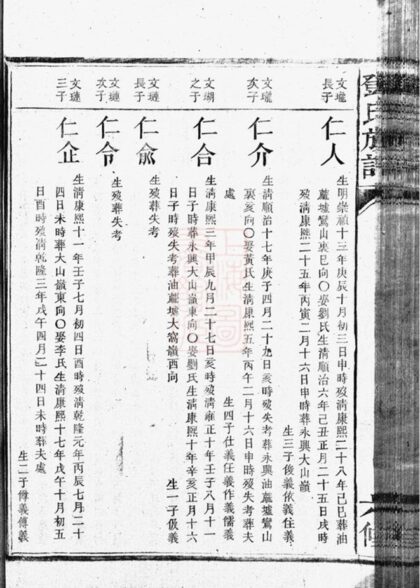 鄧氏族譜
文瓏長子
仁人
生明崇禎十三年庚辰十月初三日申時歿清康熙二十八年己巳葬油
蘆墟鶯山裏巳向〇娶劉氏生清順治六年己丑正月二十五日戌時
歿清康熙二十五年丙寅二月十六日申時葬永興大山嶺
生三子俊義依義任義
文瓏次子
仁介
生清順治十七年庚子四月二十九日亥時歿失考葬永興油蘆墟鶯山
裏亥向〇娶黃氏生清康熙五年丙午二月十六日申時歿失考葬夫
處
生四子仕義任義作義儒義
文瑚之子
仁合
生清康熙三年甲辰九月二十七日亥時歿清雍正十年壬子八月十一
日子時葬永興大山嶺東向〇娶劉氏生清康熙十年辛亥正月十六
日子時歿失考葬油蘆墟大窩嶺酉向
生一子伋義
文璉長子
仁俞
生歿葬失考
文璉次子
仁令
生歿葬失考
文璉三子
仁企
生清康熙十一年壬子七月初四日酉時歿清乾隆元年丙辰七月二十
四日未時葬大山嶺東向〇娶李氏生清康熙十七年戊午十月初五
日酉時歿清乾隆三年戊午四月二十四日未時葬夫處
生二子傳義